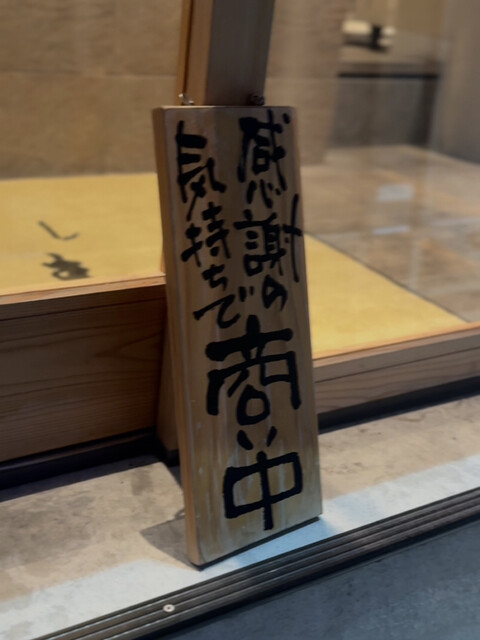 感謝の
気持ちで
商い中